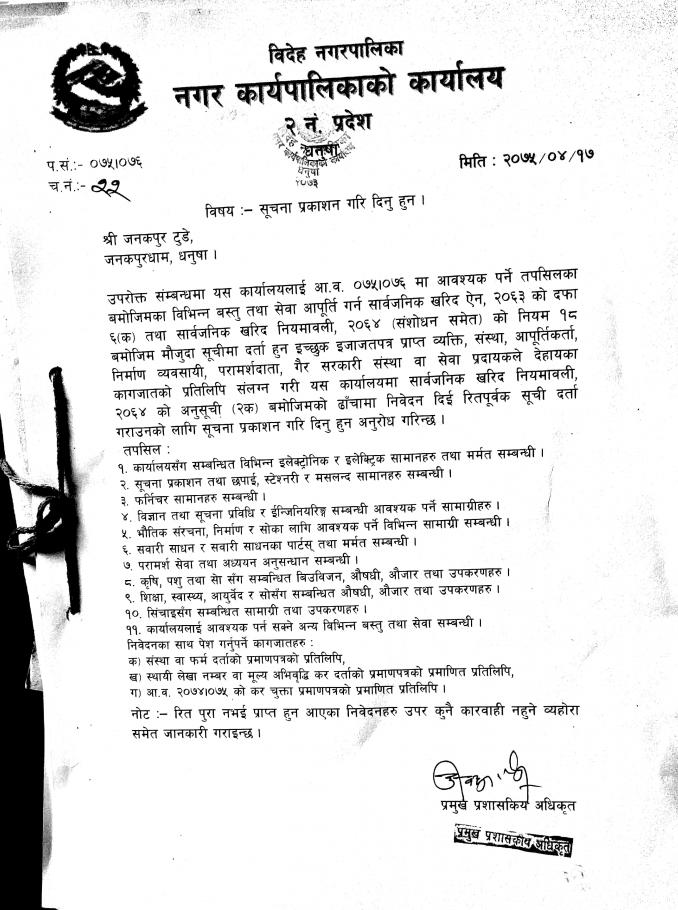 विदेह नगरपालिका
नगर कार्यपालिकाको कार्यालय
२ नं. प्रदेश
धनुषा
धनुषा
२०७३
प.सं:- ०७५।०७६
मिति : २०७५/०४/१७
च.नं:- २२
विषय :– सूचना प्रकाशन गरि दिनु हुन ।
श्री जनकपुर टुडे,
जनकपुरधाम, धनुषा ।
उपरोक्त सम्बन्धमा यस कार्यालयलाई आ.व. ०७५।०७६ मा आवश्यक पर्ने तपसिलका
बमोजिमका विभिन्न बस्तु तथा सेवा आपूर्ति गर्न सार्वजनिक खरिद ऐन, २०६३ को दफा
६(क) तथा सार्वजनिक खरिद नियमावली, २०६४ (संशोधन समेत) को नियम १८
बमोजिम मौजुदा सूचीमा दर्ता हुन इच्छुक इजाजतपत्र प्राप्त व्यक्ति, संस्था, आपूर्तिकर्ता,
निर्माण व्यवसायी, परामर्शदाता, गैर सरकारी संस्था वा सेवा प्रदायकले देहायका
कागजातको प्रतिलिपि संलग्न गरी यस कार्यालयमा सार्वजनिक खरिद नियमावली,
२०६४ को अनुसूची (२क) बमोजिमको ढाँचामा निवेदन दिई रितपूर्वक सूची दर्ता
गराउनको लागि सूचना प्रकाशन गरि दिनु हुन अनुरोध गरिन्छ ।
तपसिल :
१. कार्यालयसँग सम्बन्धित विभिन्न इलेक्ट्रोनिक र इलेक्ट्रिक सामानहरु तथा मर्मत सम्बन्धी ।
२. सूचना प्रकाशन तथा छपाई, स्टेश्नरी र मसलन्द सामानहरु सम्बन्धी ।
३. फर्निचर सामानहरु सम्बन्धी ।
४. विज्ञान तथा सूचना प्रविधि र ईन्जिनियरिङ्ग सम्बन्धी आवश्यक पर्ने सामाग्रीहरु ।
५. भौतिक संरचना, निर्माण र सोका लागि आवश्यक पर्ने विभिन्न सामाग्री सम्बन्धी ।
६. सवारी साधन र सवारी साधनका पार्टस् तथा मर्मत सम्बन्धी ।
७. परामर्श सेवा तथा अध्ययन अनुसन्धान सम्बन्धी ।
८. कृषि, पशु तथा सेा संग सम्बन्धित बिउविजन, औषधी, औजार तथा उपकरणहरु ।
९. शिक्षा, स्वास्थ्य, आयुर्वेद र सोसंग सम्बन्धित औषधी, औजार तथा उपकरणहरु ।
१०. सिंचाइसँग सम्बन्धित सामाग्री तथा उपकरणहरु ।
११. कार्यालयलाई आवश्यक पर्न सक्ने अन्य विभिन्न बस्तु तथा सेवा सम्बन्धी ।
निवेदनका साथ पेश गर्नुपर्ने कागजातहरु :
क) संस्था वा फर्म दर्ताको प्रमाणपत्रको प्रतिलिपि,
ख) स्थायी लेखा नम्बर वा मूल्य अभिवृद्धि कर दर्ताको प्रमाणपत्रको प्रमाणित प्रतिलिपि,
ग) आ.व. २०७४।०७५ को कर चुक्ता प्रमाणपत्रको प्रमाणित प्रतिलिपि ।
नोट :– रित पुरा नभई प्राप्त हुन आएका निवेदनहरु उपर कुनै कारवाही नहुने व्यहोरा
समेत जानकारी गराइन्छ ।
प्रमुख प्रशासकिय अधिकृत
प्रमुख प्रशासकीय अधिकृत